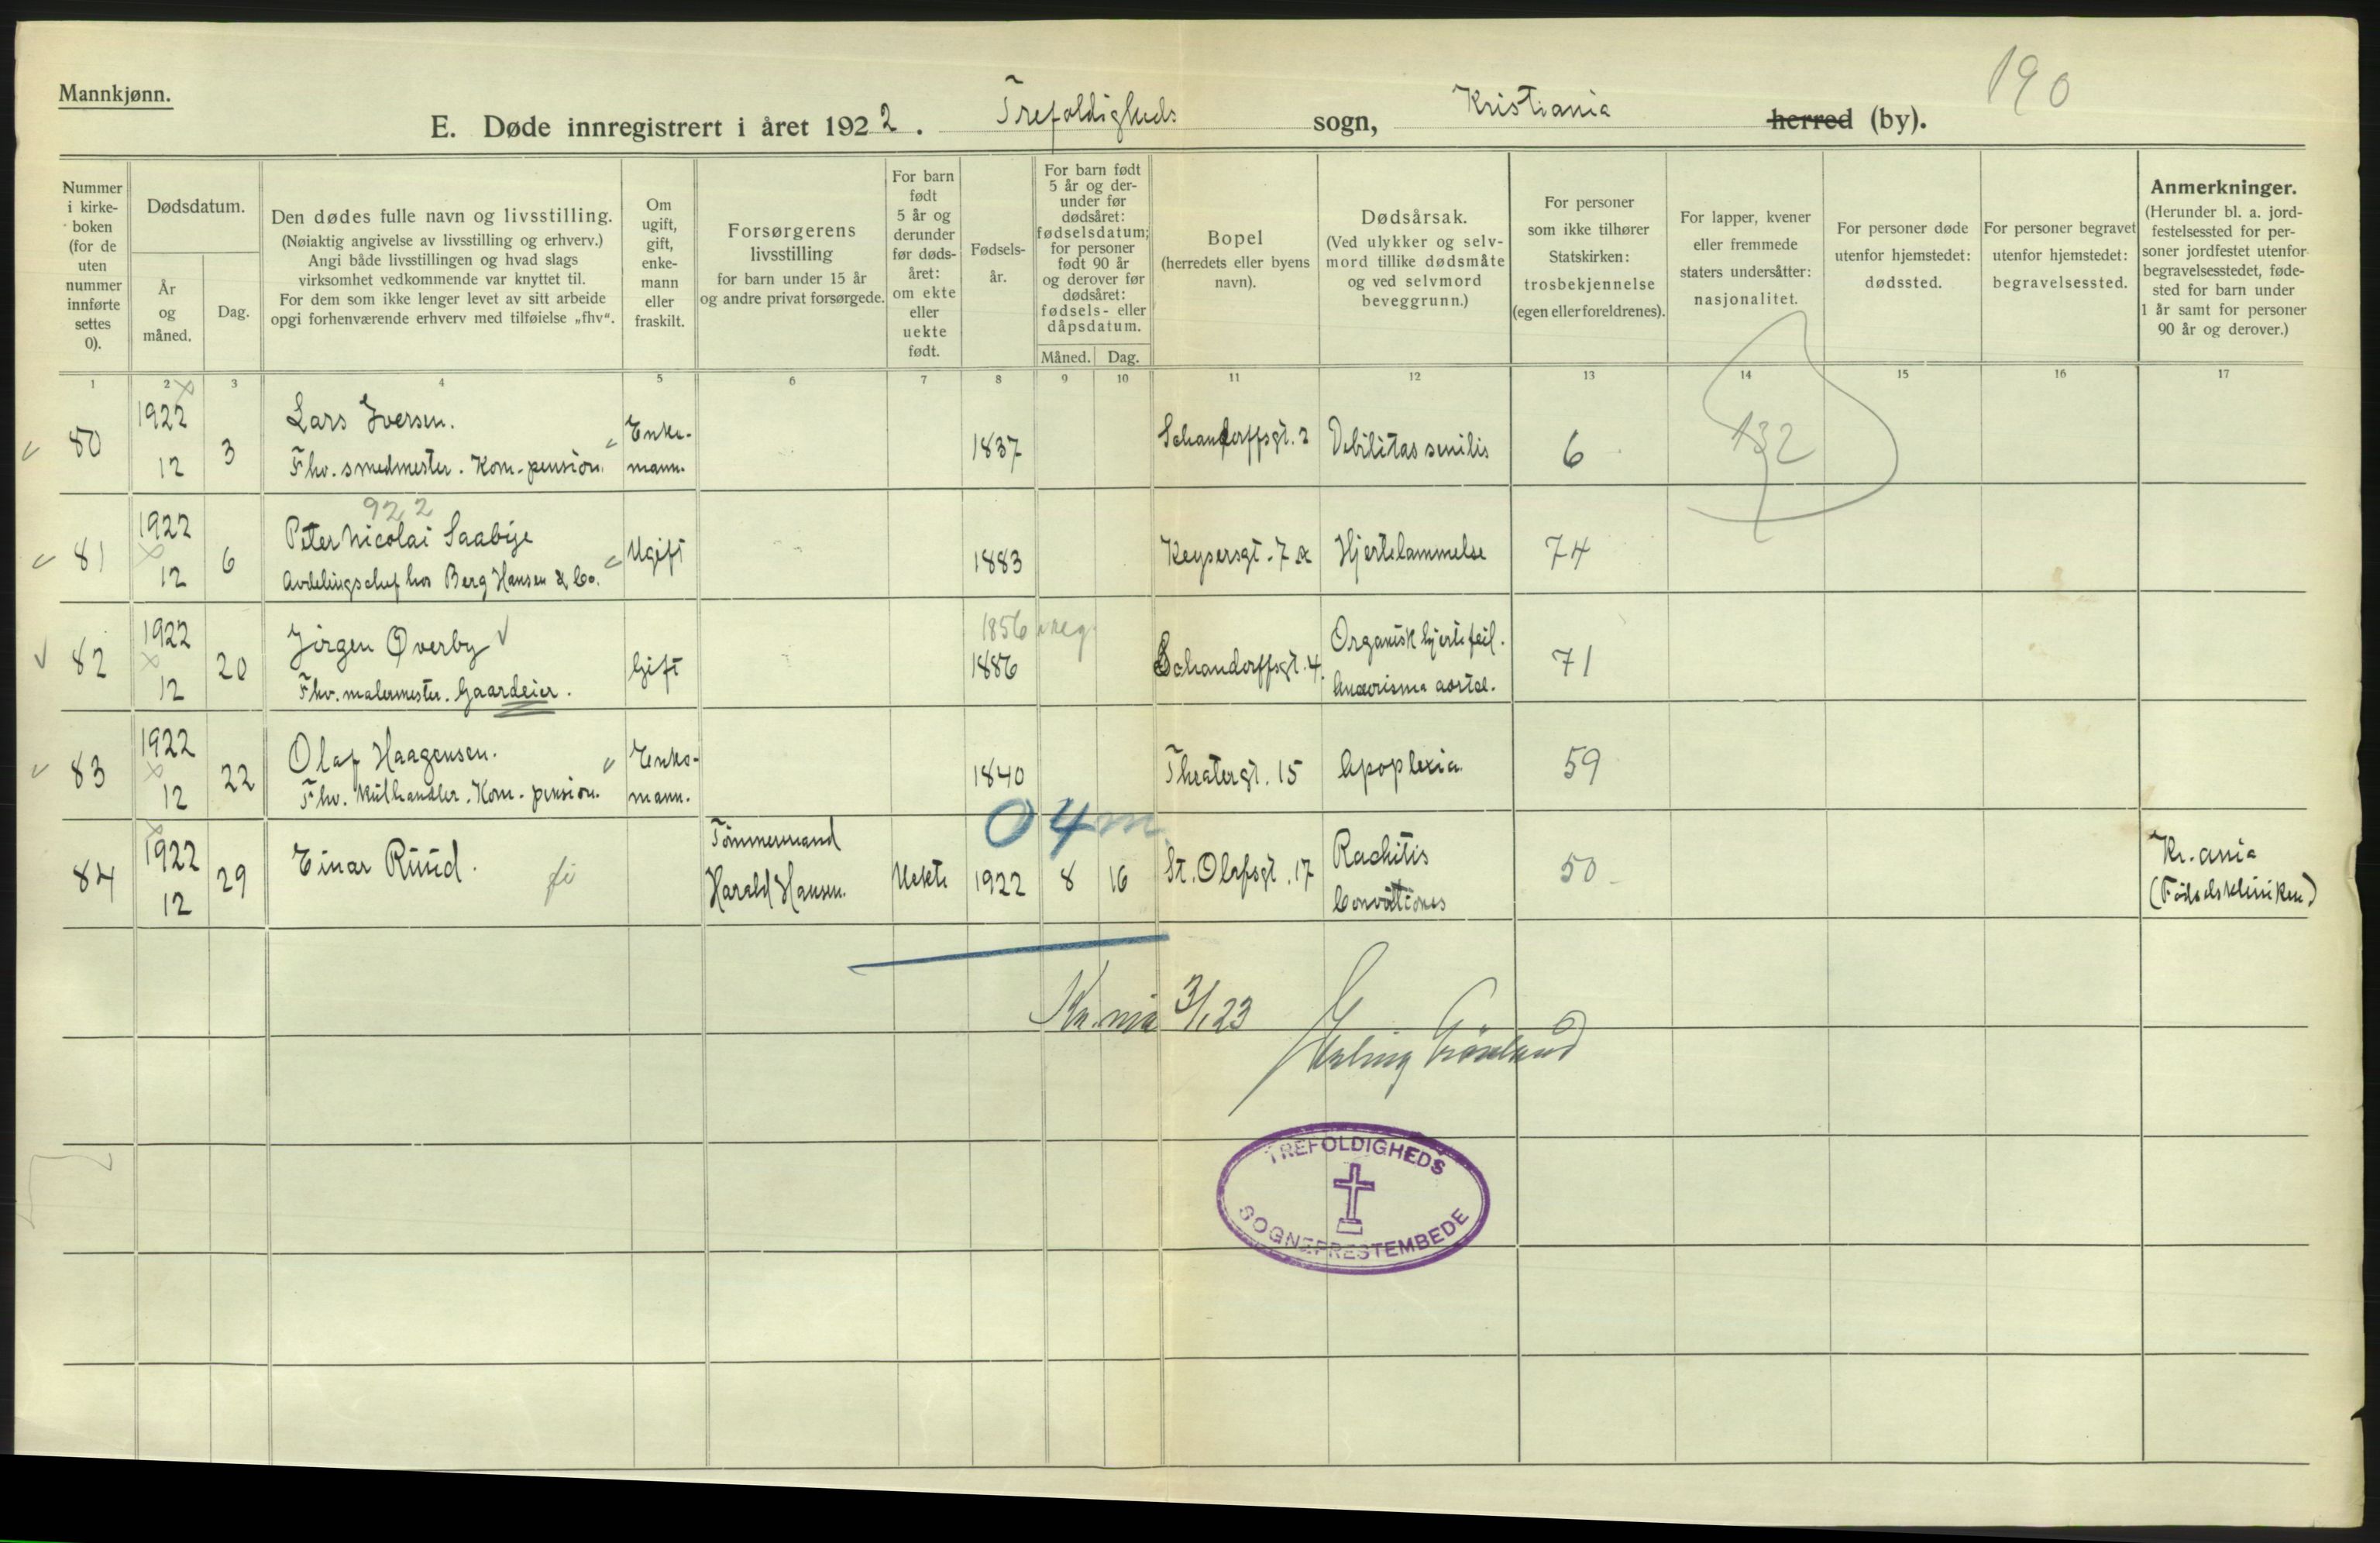 190
Mannkjønn.
E. Døde innregistrert i året 1922. Trefoldigheds sogn, Kristiania herred (by).
Nummer i kirke- boken (for de uten nummer innførte settes 0).
Dødsdatum.
År og måned.
Dag.
Den dødes fulle navn og livsstilling.
(Nøiaktig angivelse av livsstilling og erhverv.)
Angi både livsstillingen og hvad slags
virksomhet vedkommende var knyttet til.
For dem som ikke lenger levet av sitt arbeide
opgi forhenværende erhverv med tilføielse „fhv“.
Om ugift, gift, enke- mann eller fraskilt.
Forsørgerens
livsstilling
for barn under 15 år
og andre privat forsørgede.
For barn født 5 år og derunder før døds- året: om ekte eller uekte født.
Fødsels- år.
For barn født 5 år og der- under før dødsåret: fødselsdatum; for personer født 90 år og derover før dødsåret: fødsels- eller dåpsdatum.
Måned. Dag.
Bopel
(herredets eller byens
navn).
Dødsårsak.
(Ved ulykker og selv-
mord tillike dødsmåte
og ved selvmord
beveggrunn.)
For personer
som ikke tilhører
Statskirken:
trosbekjennelse
(egen eller foreldrenes).
For lapper, kvener
eller fremmede
staters undersåtter:
nasjonalitet.
For personer døde
utenfor hjemstedet:
dødssted.
For personer begravet
utenfor hjemstedet:
begravelsessted.
Anmerkninger.
(Herunder bl. a. jord-
festelsessted for per-
soner jordfestet utenfor
begravelsesstedet, føde-
sted for barn under
1 år samt for personer
90 år og derover.)
1 2 3 4 5 6 7 8 9 10 11 12 13 14 15 16 17
80 1922 12 3 Lars Iversen.
Fhv. smedmester. Kom. pension.
Enke-
mann.
1837 Schandorffsgt. 2 Debilitas senilis 6 132
922
81 1922 12 6 Peter Nicolai Saabye
Avdelingschef hos Berg Hansen & Co.
Ugift 1883 Keysersgt. 7 a Hjertelammelse 74
82 1922 12 20 Jörgen Øverby
Fhv. malermester. Gaardeier.
Gift 1856
1886 Schandorffsgt. 4. Organisk hjertefeil.
Aneurisma aortae.
71
83 1922 12 22 Olaf Haagensen.
Fhv. Kulhandler. Kom. pension.
Enke-
mann.
1840 Theatergt. 15 Apoplexia 59
0 4 m
84 1922 12 29 Einar Ruud. Tömmermand
Harald Hansen.
Uekte 1922 8 16 St. Olafsgt. 17 Rachitis
50
Kr.ania
(Födselskliniken)
Kr.nia 3/1 23
Erling Grönland
TREFOLDIGHEDS
SOGNEPRESTEMBEDE